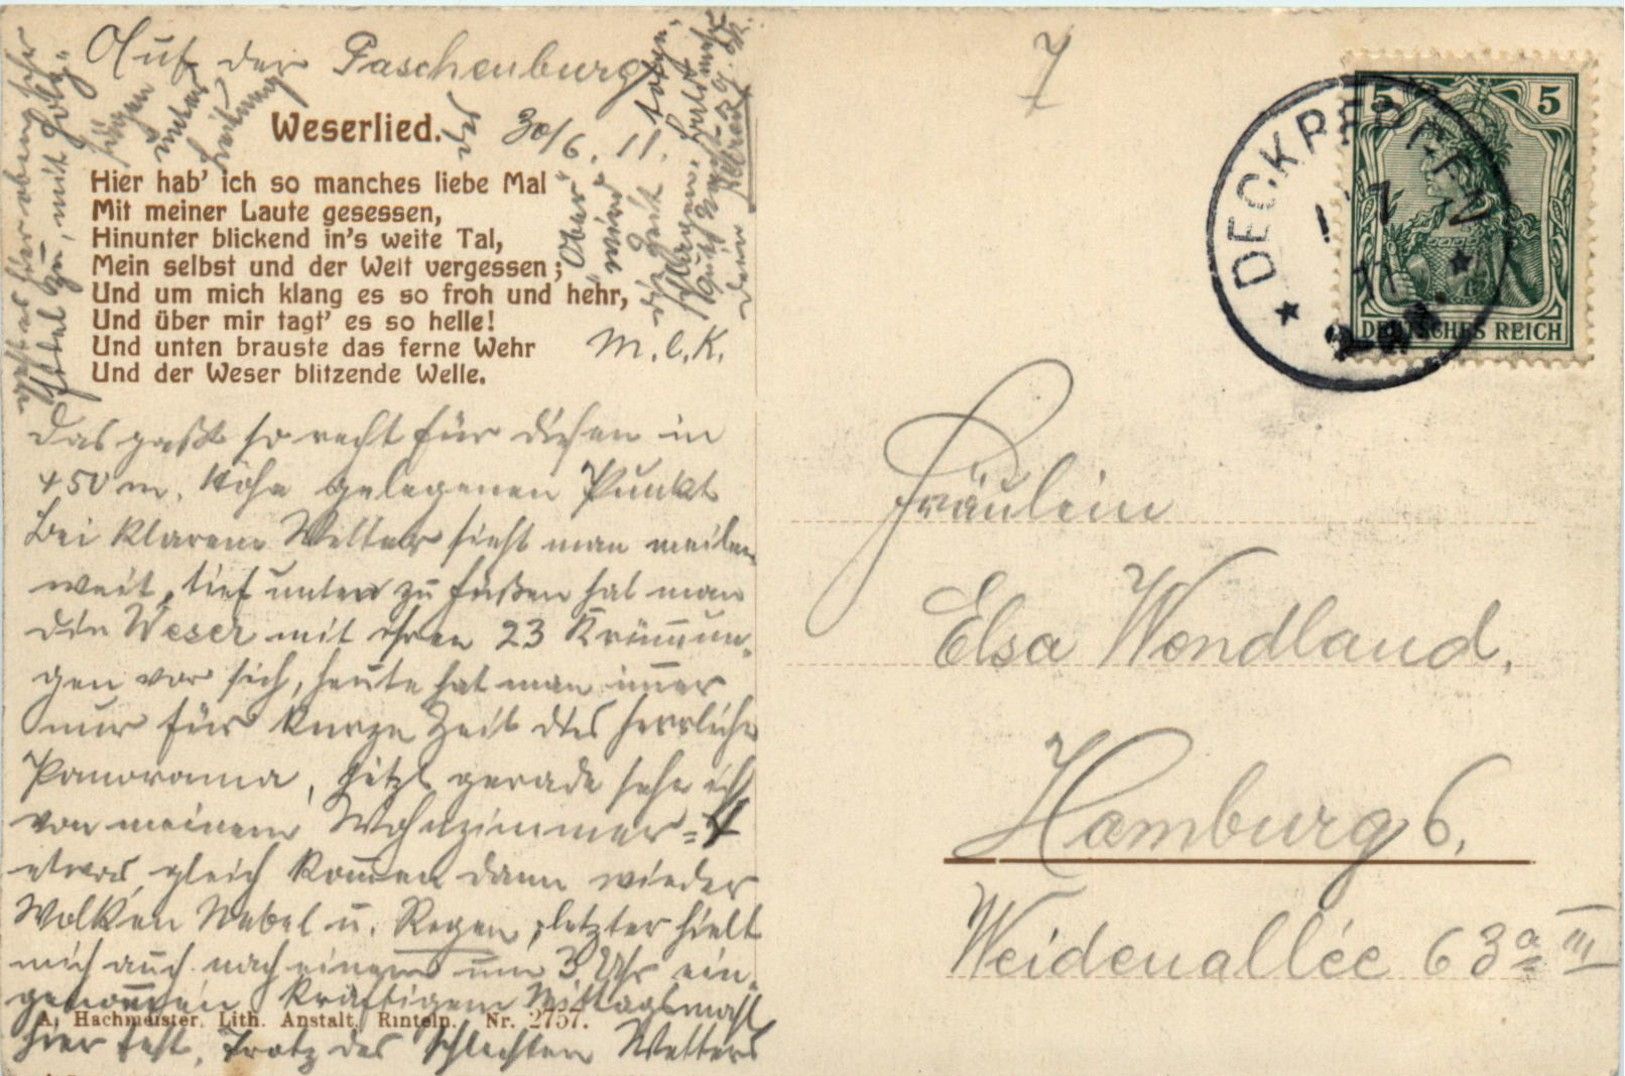 Auf der Paschenburg
30/6. 11.
Weserlied.
Hier hab' ich so manches liebe Mal
Mit meiner Laute gesessen,
Hinunter blickend in's weite Tal,
Mein selbst und der Welt vergessen;
Und um mich klang es so froh und hehr,
Und über mir tagt' es so helle!
Und unten brauste das ferne Wehr
Und der Weser blitzende Welle.
Das paßt so recht für diesen in
450 m. Höhe gelegenen Punkt
Bei klarem Wetter sieht man meilen-
weit, tief unten zu Füßen hat man
die Weser mit ihren 23 Krüm̅un-
gen vor sich, heute hat man im̅er
nur für kurze Zeit das herrliche
Panorama, jetzt gerade sehe ich
von meinem Wohnzimmer
etwas, gleich kom̅en dann wieder
Wolken Nebel u. Regen, letzter hielt
mich auch nach einem um 3 Uhr ein-
genom̅enen kräftigem Mittagsmahl
hier fest. Trotz des schlechten Wetters
A. Hachmeister, Lith. Anstalt, Rinteln. Nr. 2757.
DECKBERGEN
5
DEUTSCHES REICH
Fräulein
Elsa Wendland,
Hamburg 6.
Weidenallée 63a III